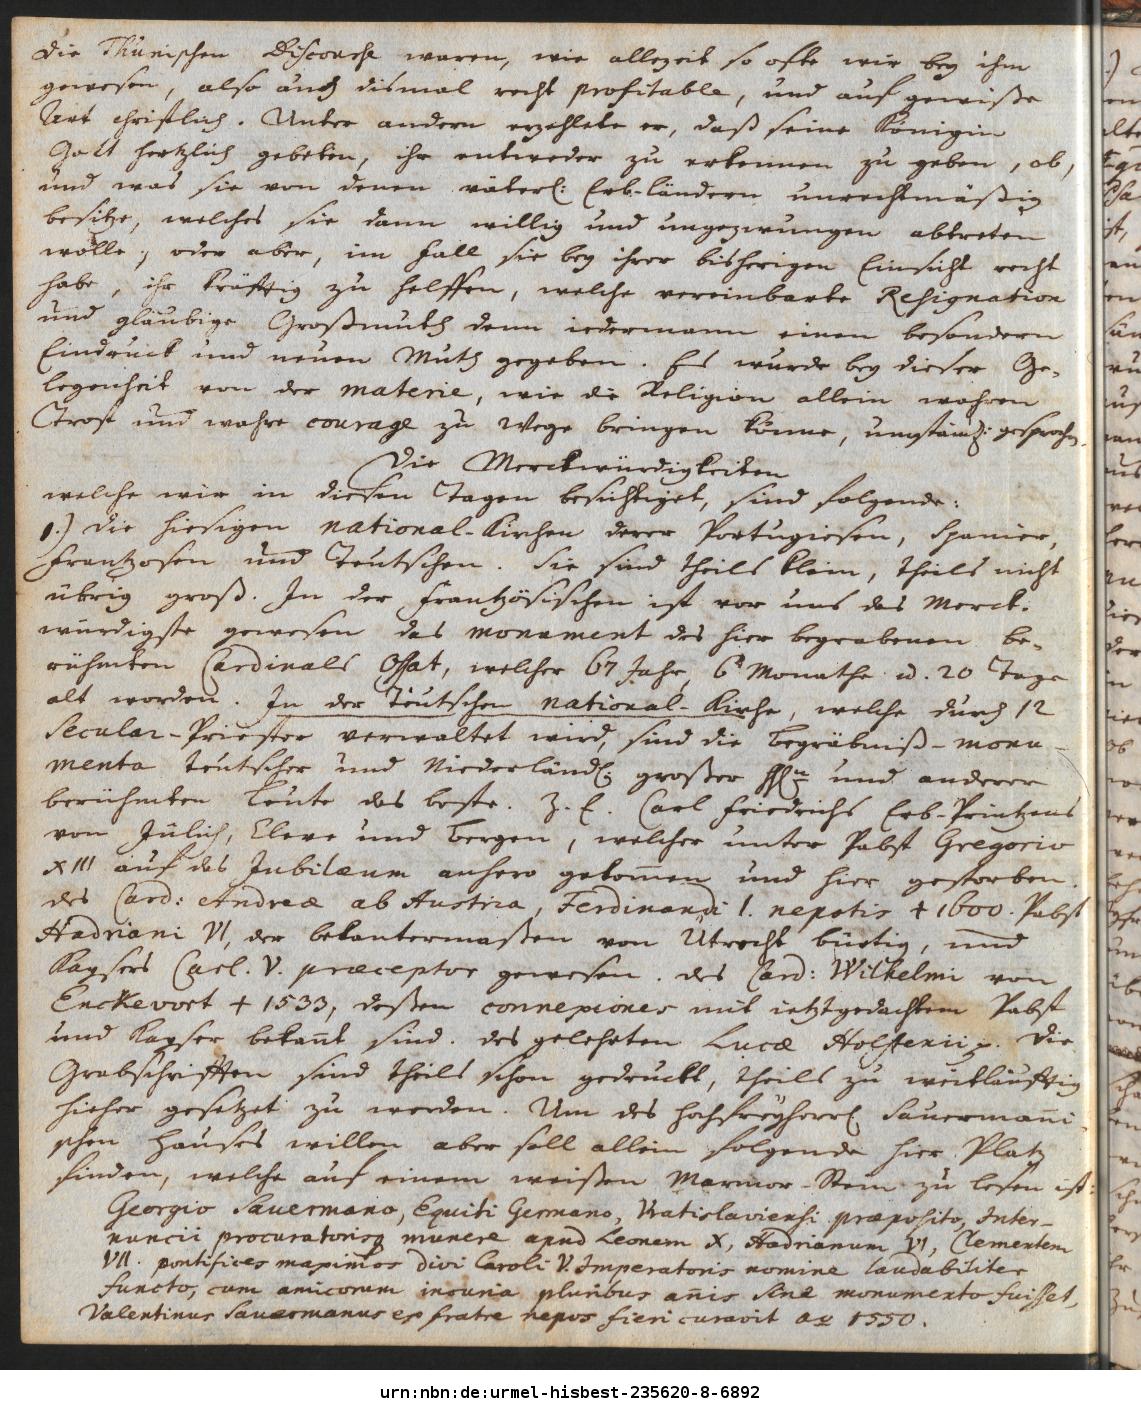 Die Thunischen Discourse waren, wie allezeit so offte wir bey ihm
gewesen, also auch dismal recht profitable, und auf gewiße
Art christlich. Unter andern erzehlete er, daß seine Königin
Gott hertzlich gebeten, ihr entweder zu erkennen zu geben, ob,
und was sie von denen väterl: Erb-ländern unrechtmäßig
besitze, welches sie dann willig und ungezwungen abtreten
wolle; oder aber, im fall sie bey ihrer bisherigen Einsicht recht
habe, ihr kräfftig zu helffen, welche vereinbarte Resignation
und gläubige Großmuth denn iedermann einen besondern
Eindruck und neuen Muth gegeben. Es wurde bey dieser Ge-
legenheit von der materie, wie die Religion allein wahren
Trost und wahre courage zu wege bringen könne, umständl: gesprochen.
Die Merckwürdigkeiten
welche wir in diesen Tagen besichtiget, sind folgende:
1.) Die hiesigen national-Kirchen derer Portugiesen, Spanier,
Frantzosen und Teutschen. Sie sind theils klein, theils nicht
übrig groß. In der Frantzösischen ist vor uns das Merck-
würdigste gewesen das monument des hier begrabenen be-
rühmten Cardinals Ossat, welcher 67 Jahr, 6 Monathe u. 20 Tage
alt worden. In der Teutschen national-Kirche, welche durch 12
Secular-Priester verwaltet wird, sind die Begräbniß-monu-
menta teutscher und Niederländ: großer und anderer
berühmten Leute das beste. Z. E. Carl Friedrichs Erb-Printzens
von Jülich, Cleve und Bergen, welcher unter Pabst Gregorio
XIII auf das Jubilæum anhero gekommen und hier gestorben.
des Card: Andreæ ab Austria, Ferdinandi I. nepotis † 1600. Pabst
Hadriani VI, der bekantermaßen von Utrecht bürtig, und
Kaysers Carl. V. præceptor gewesen. des Card: Wilhelmi von
Enckevort † 1533, deßen connexiones mit ietztgedachtem Pabst
und Kayser bekannt sind. des gelehrten Lucæ Holstenii p. Die
Grabschrifften sind theils schon gedruckt, theils zu weitläufftig
hieher gesetzet zu werden. Um des hochfreyherrl Sauermanni-
schen Hauses willen aber soll allein folgende hier Platz
finden, welche auf einem weißen Marmor-Stein zu lesen ist:
Georgio Sauermano, Equiti Germano, Vratislaviensi præposito, Inter-
nuncii procuratorisq munere apud Leonem X, Hadrianum VI, Clementem
VII. pontifices maximos divi Caroli V. Imperatoris nomine laudabiliter
functo, cum amicorum incuria pluribus annis sine monumento fuisset,
Valentinus Sauermanus ex fratre nepos fieri curavit ao 1550.
urn:nbn:de:urmel-hisbest-235620-8-6892